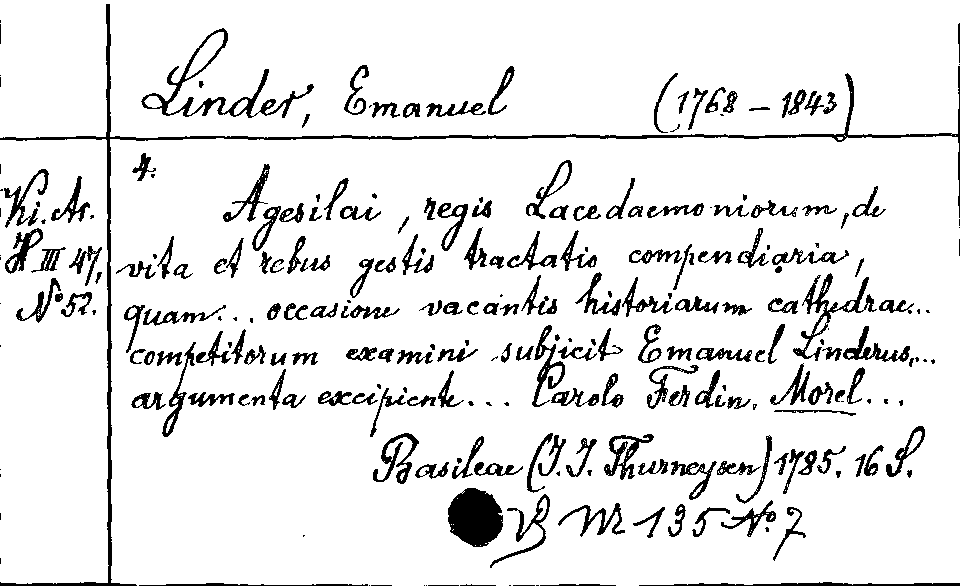 Linder, Emanuel (1768 – 1843)
4.
Ki. Ar.
H III 47,
No 52.
Agesilai, regis Lacedaemoniorum, de
vita et rebus gestis tractatio compendiaria,
quam... occasione vacantis historiarum cathedrae...
competitorum examini subjicit Emanuel Linderus,...
argumenta excipiente... Carolo Ferdin. Morel...
Basileae (J. J. Thurneysen) 1785. 16 S.
VB Mr 135 No 7